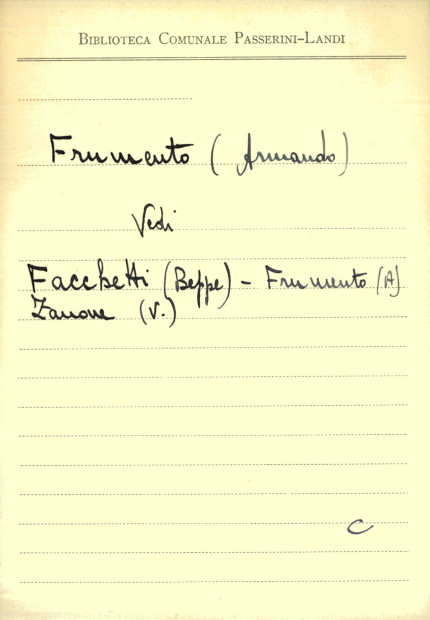 Biblioteca Comunale Passerini-Landi
Frumento (Armando)
Vedi
Facchetti (Beppe) - Frumento (A)
Zanone (V.)
C